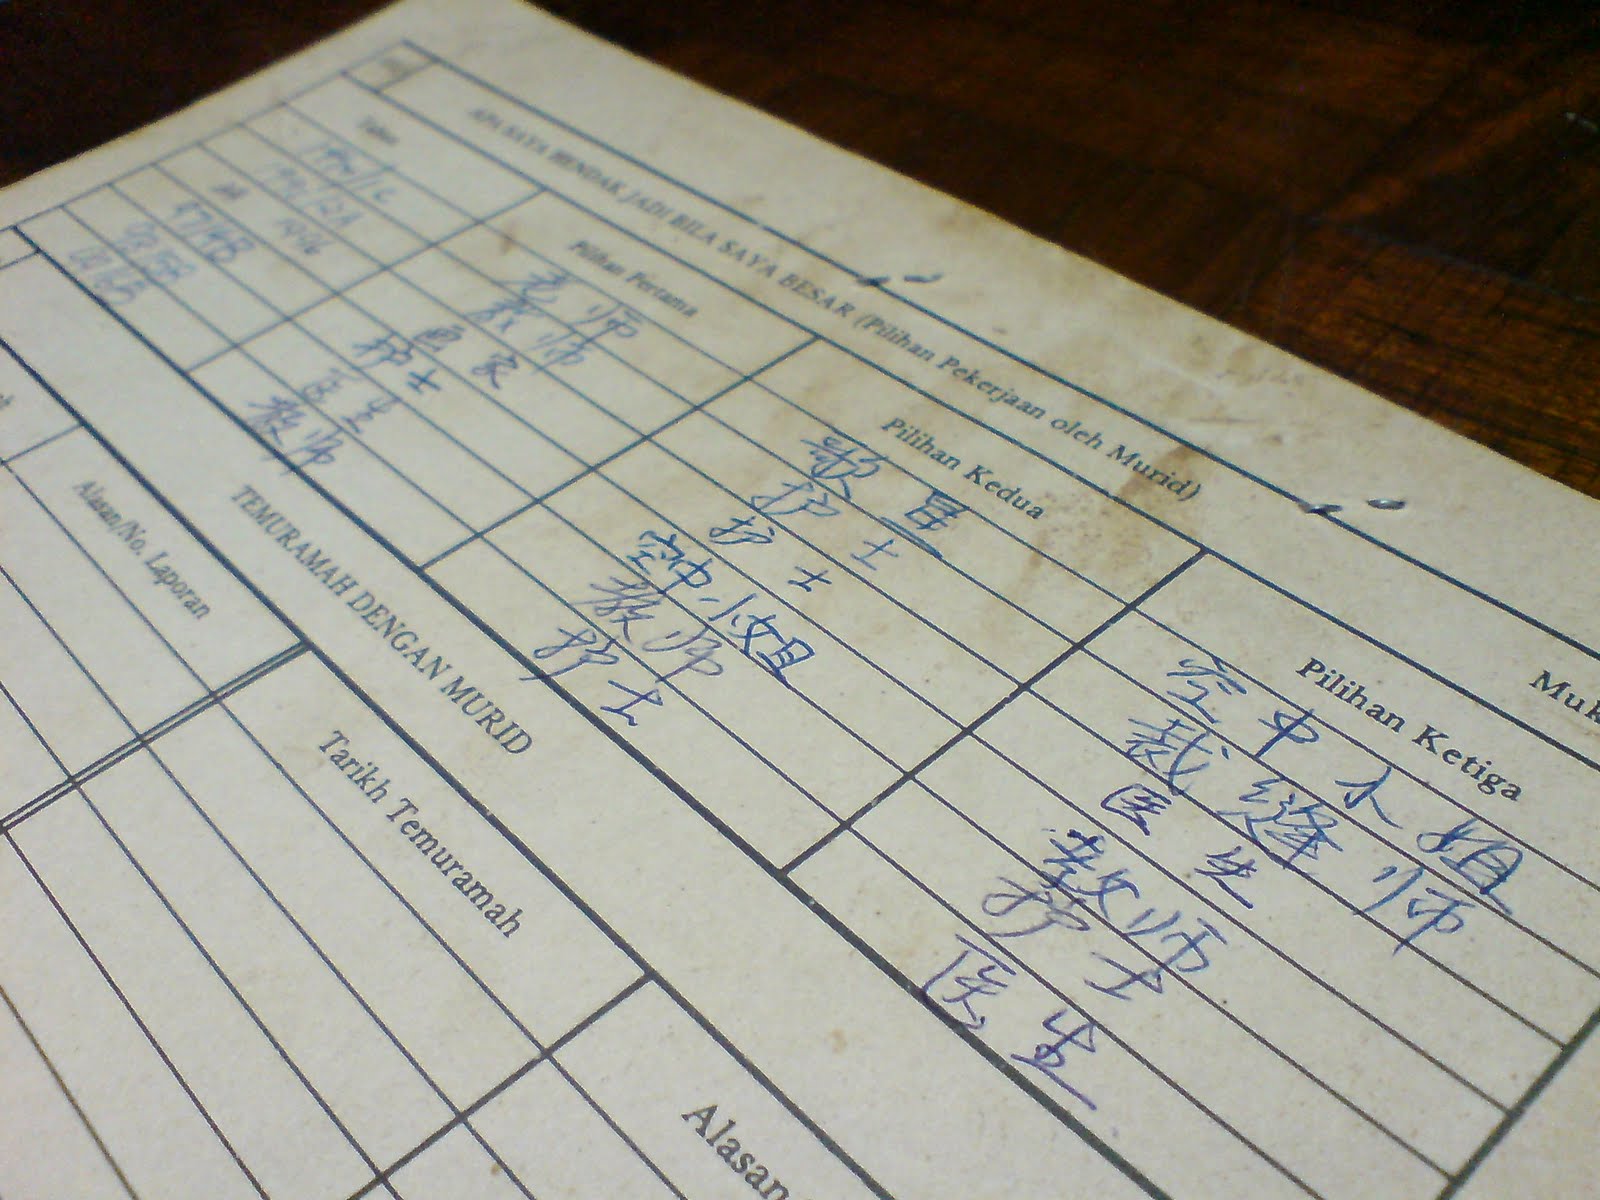 APA SAYA HENDAK JADI BILA SAYA BESAR (Pilihan Pekerjaan oleh Murid)
Tahun Pilihan Pertama Pilihan Kedua Pilihan Ketiga
老师 歌星 空中小姐
教师 护士 裁缝师
画家 护士 医生
护士 空中小姐 教师
医生 教师 护士
教师 护士 医生
TEMURAMAH DENGAN MURID
Alasan/No. Laporan Tarikh Temuramah Alasan